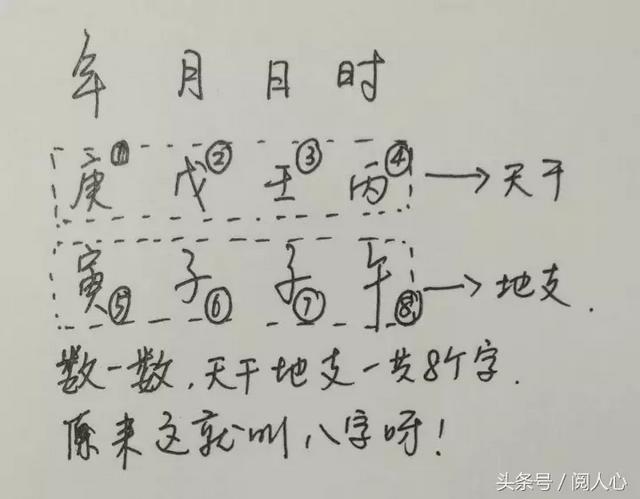 年 月 日 时
庚① 戊② 壬③ 丙④ → 天干
寅⑤ 子⑥ 子⑦ 午⑧ → 地支.
数一数,天干地支一共8个字.
原来这就叫八字呀!
头条号/阅人心